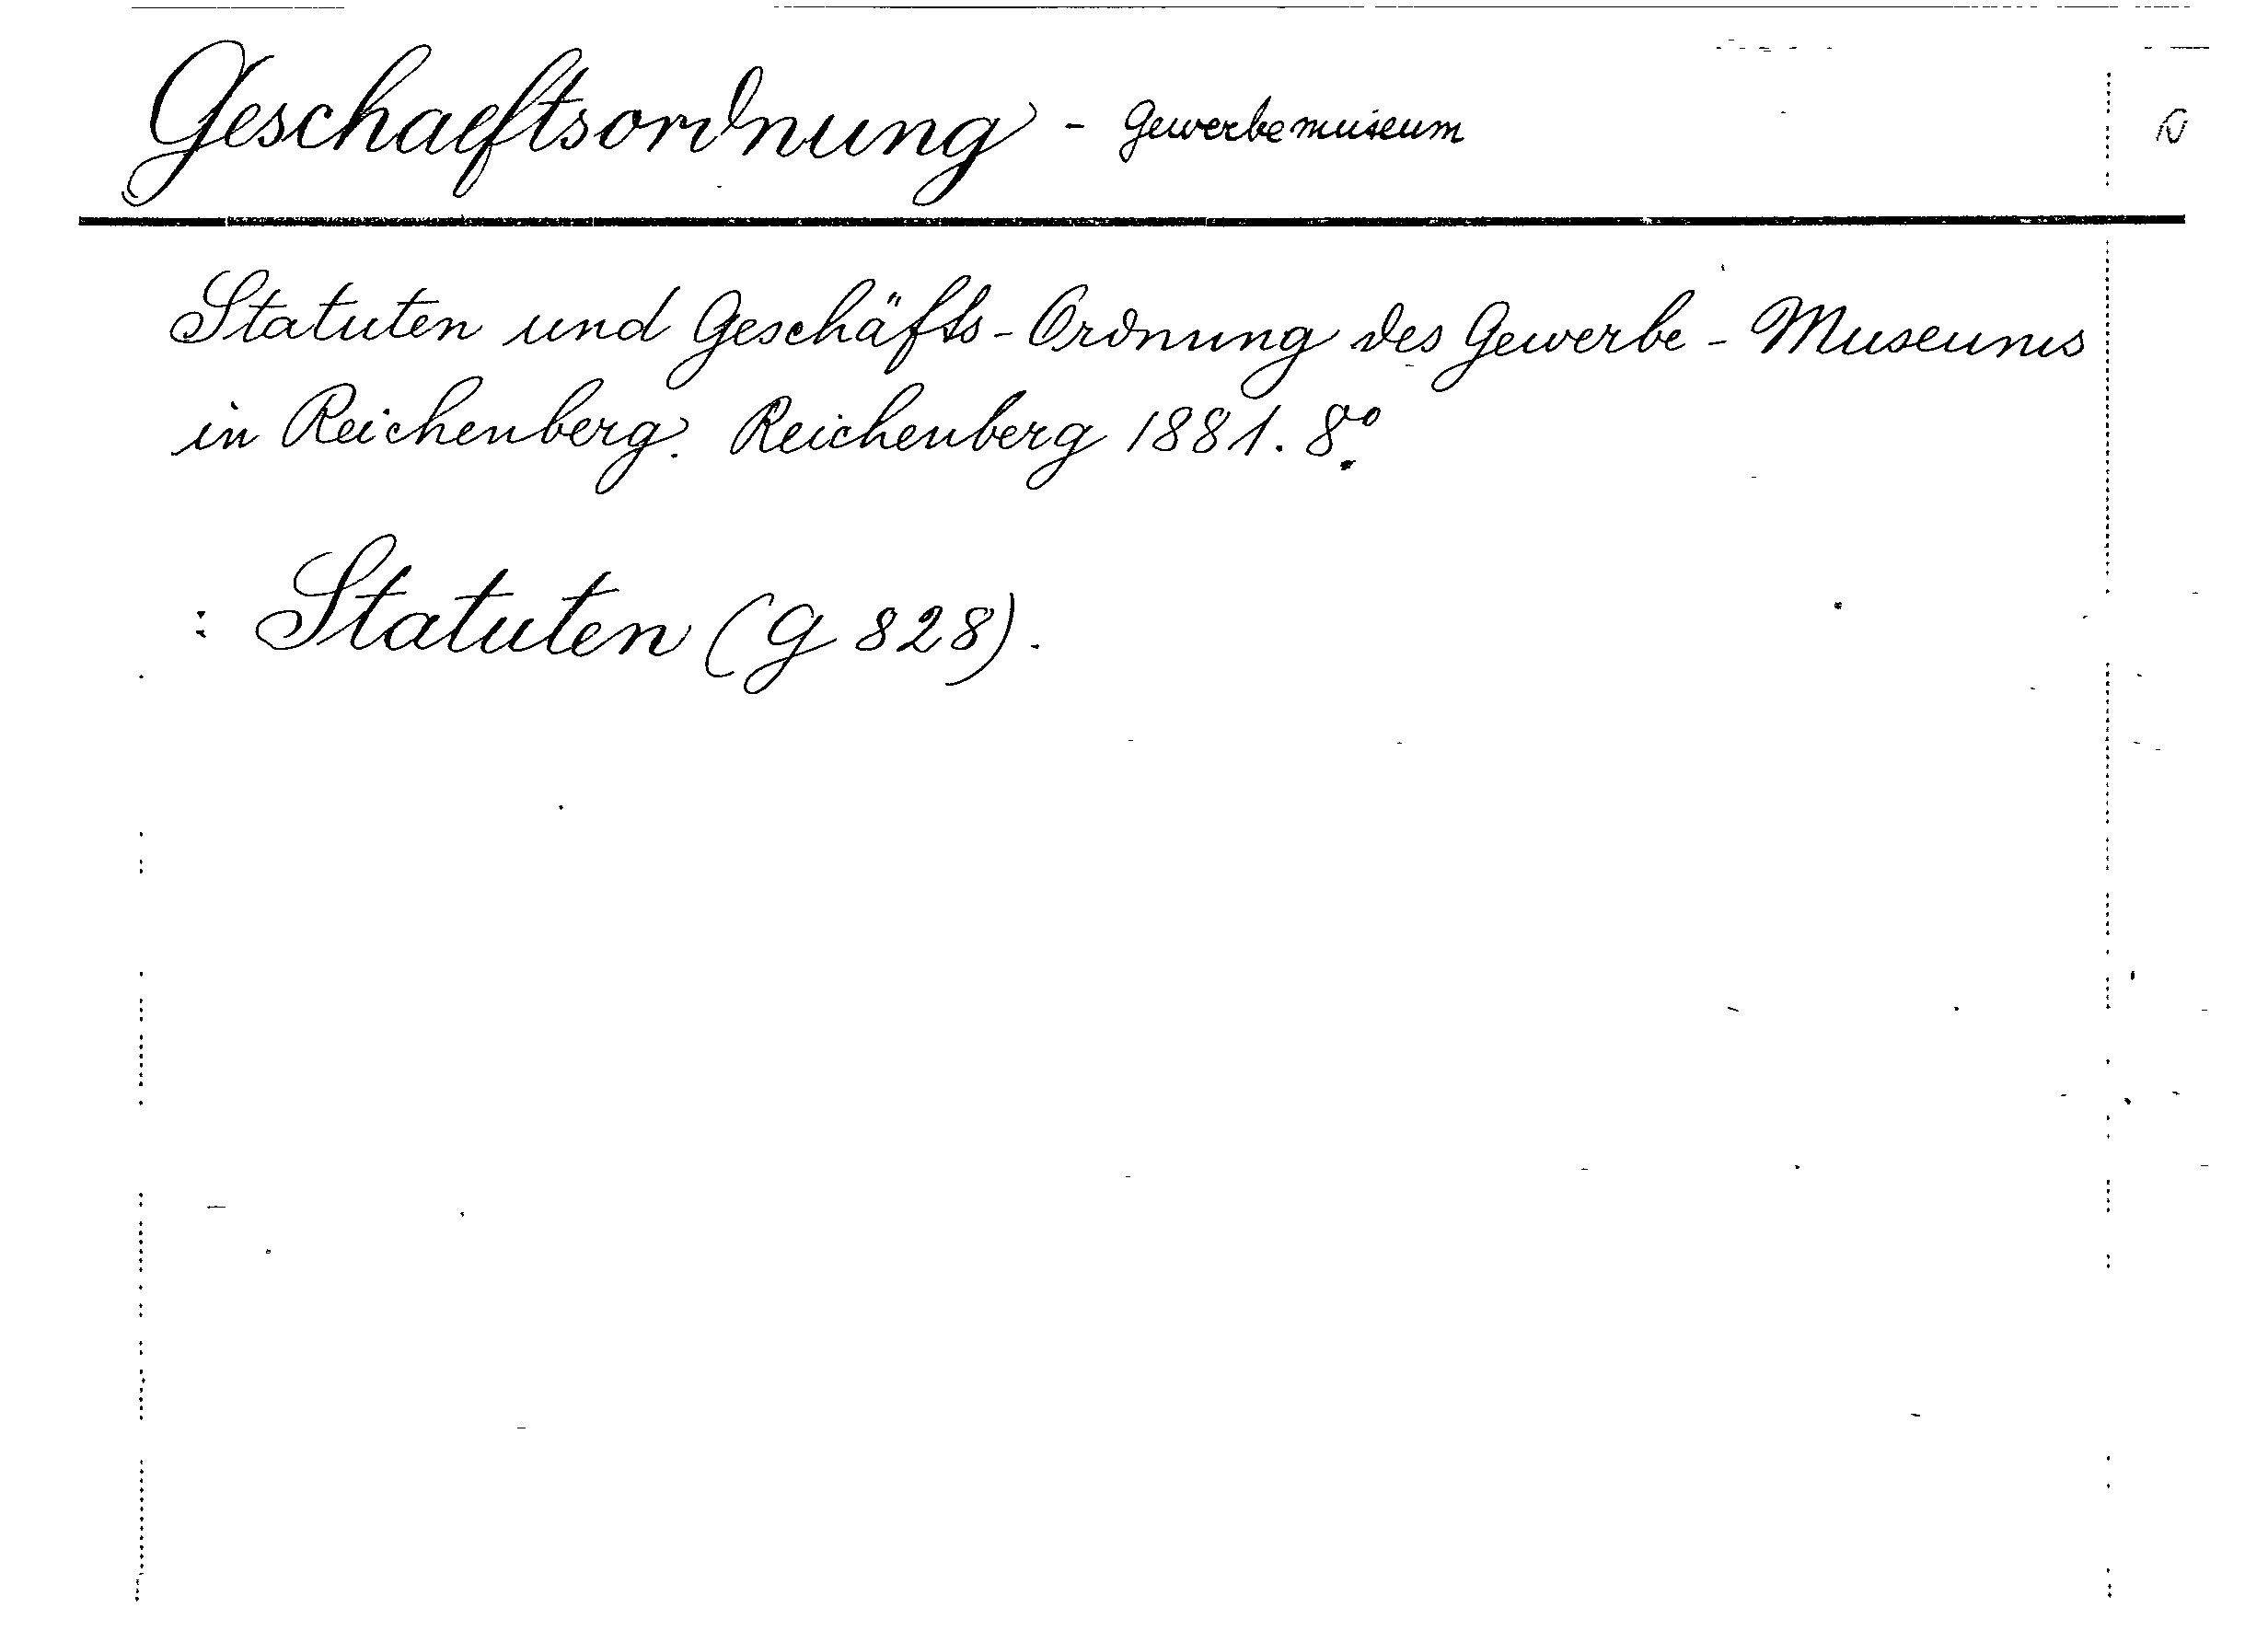 Geschaeftsordnung - Gewerbemuseum N
Statuten und Geschäfts-Ordnung des Gewerbe-Museums
in Reichenberg. Reichenberg 1881. 8º.
: Statuten (G 828).